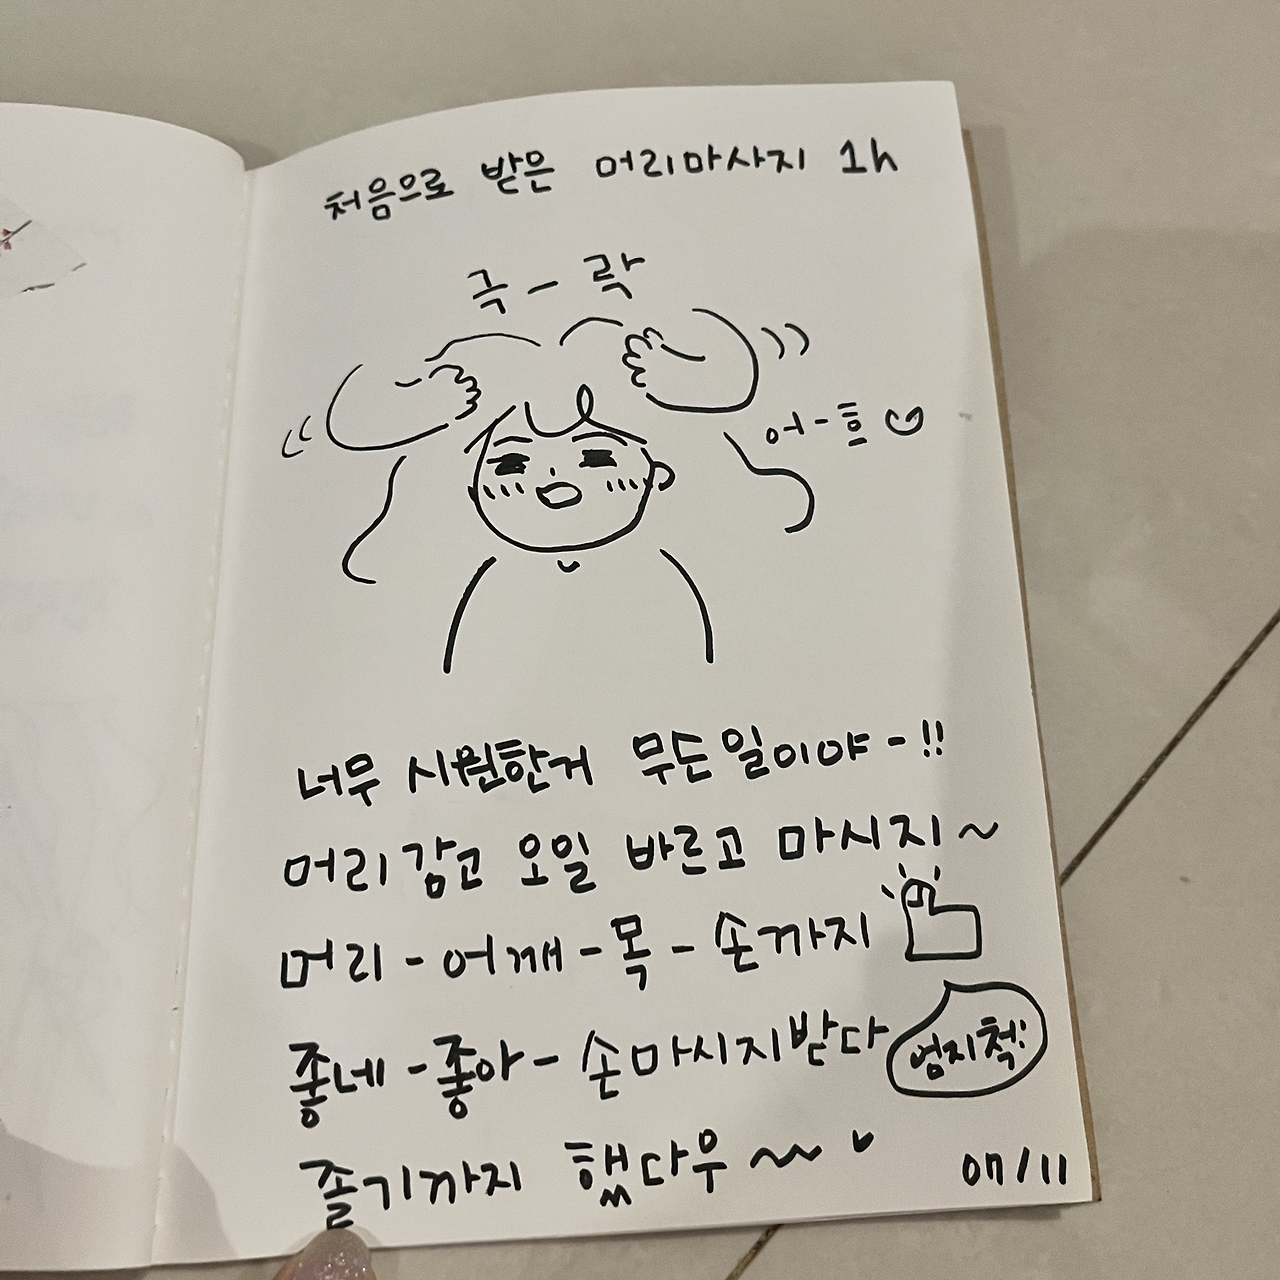 처음으로 받은 머리마사지 1h
극 - 락
어-흐
너무 시원한거 무슨일이야-!!
머리감고 오일 바르고 마시지~
머리-어깨-목-손까지
좋네-좋아-손마시지받다
엄지척!
졸기까지 했다우~
07/11